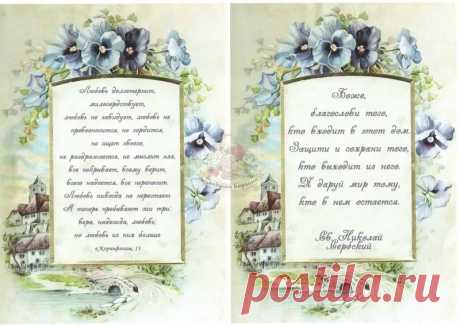 Любовь долготерпит,
милосердствует,
любовь не завидует, любовь не
превозносится, не гордится,
не ищет своего,
не раздражается, не мыслит зла,
все покрывает, всему верит,
всего надеется, все переносит.
Любовь никогда не перестает
А теперь пребывают сии три:
вера, надежда, любовь;
но любовь из них больше
1.Коринфянам, 13
Боже,
благослови того,
кто входит в этот дом.
Защити и сохрани того,
кто выходит из него.
И даруй мир тому,
кто в нем остается.
Св. Николай
Сербский
postila.ru